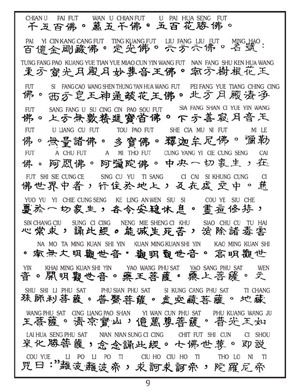 CHIAN U PAI FUT WAN U CHIAN FUT U PAI HUA SENG FUT
千五百佛。萬五千佛。五百花勝佛。
PAI YI CIN KANG CANG FUT TING KUANG FUT LIU FANG LIU FUT MING HAO
百億金剛藏佛。定光佛。六方六佛。名號：
TUNG FANG PAO KUANG YUE TIAN YUE MIAO CUN YIN WANG FUT NAN FANG SHU KEN HUA WANG
東方寶光月殿月妙尊音王佛。南方樹根花王
FUT SI FANG CAO WANG SHEN THUNG YAN HUA WANG FUT PEI FANG YUE TIANG CHING CING
佛。西方皂王神通燄花王佛。北方月殿清淨
FUT SANG FANG U SU CING CIN PAO SOU FUT SIA FANG SHAN CI YUE YIN WANG
佛。上方無數精進寶首佛。下方善寂月音王
FUT U LIANG CU FUT TOU PAO FUT SHE CIA MU NI FUT M LE
佛。無量諸佛。多寶佛。釋迦牟尼佛。彌勒
FUT A CHU FUT A MI THO FUT CUNG YANG YI CIE CUNG SENG CAI
佛。阿閦佛。阿彌陀佛。中央一切眾生，在
FUT SHI SIE CUNG CE SING CU YU TI SANG CI CAI SI KHUNG CUNG CI
佛世界中者，行住於地上，及在虛空中。慈
YUO YU YI CHE CUNG SENG KE LING AN WEN SIU SI COU YE SIU CHE
憂於一切眾生，各令安穩休息。晝夜修持，
SIN CHANG CIU SUNG CI CING NENG MIE SHENG CI KHU SIAO CHU CU TU HAI
心常求，誦此經。能滅生死苦，消除諸毒害
NA MO TA MING KUAN SHI YIN KUAN MING KUAN SHI YIN KAO MING KUAN SHI
。南無大明觀世音。觀明觀世音。高明觀世
YIN KHAI MING KUAN SHI YIN YAO WANG PHU SAT YAO SANG PHU SAT WEN
音。開明觀世音。藥王菩薩。藥上菩薩。文
SHU SHI LI PHU SAT PHU SIAN PHU SAT SI KUNG CANG PHU SAT TI CHANG
殊師利菩薩。普賢菩薩。虛空藏菩薩。地藏
WANG PHU SAT CING LIANG PAO SHAN YI WAN CUN PHU SAT PHU KUANG WANG JU
王菩薩。清涼寶山，億萬菩薩。普光王如
LAI HUA SENG PHU SAT NAN NAN SUNG CI CING CHIT FUT SHI CUN CI SHOU
來化勝菩薩，念念誦此經。七佛世尊。即說
COU YUE LI PO LI PO TI CIU HO CIU HO TI THO LO NI TI
咒曰：”離波離波帝，求訶求訶帝，陀羅尼帝
9